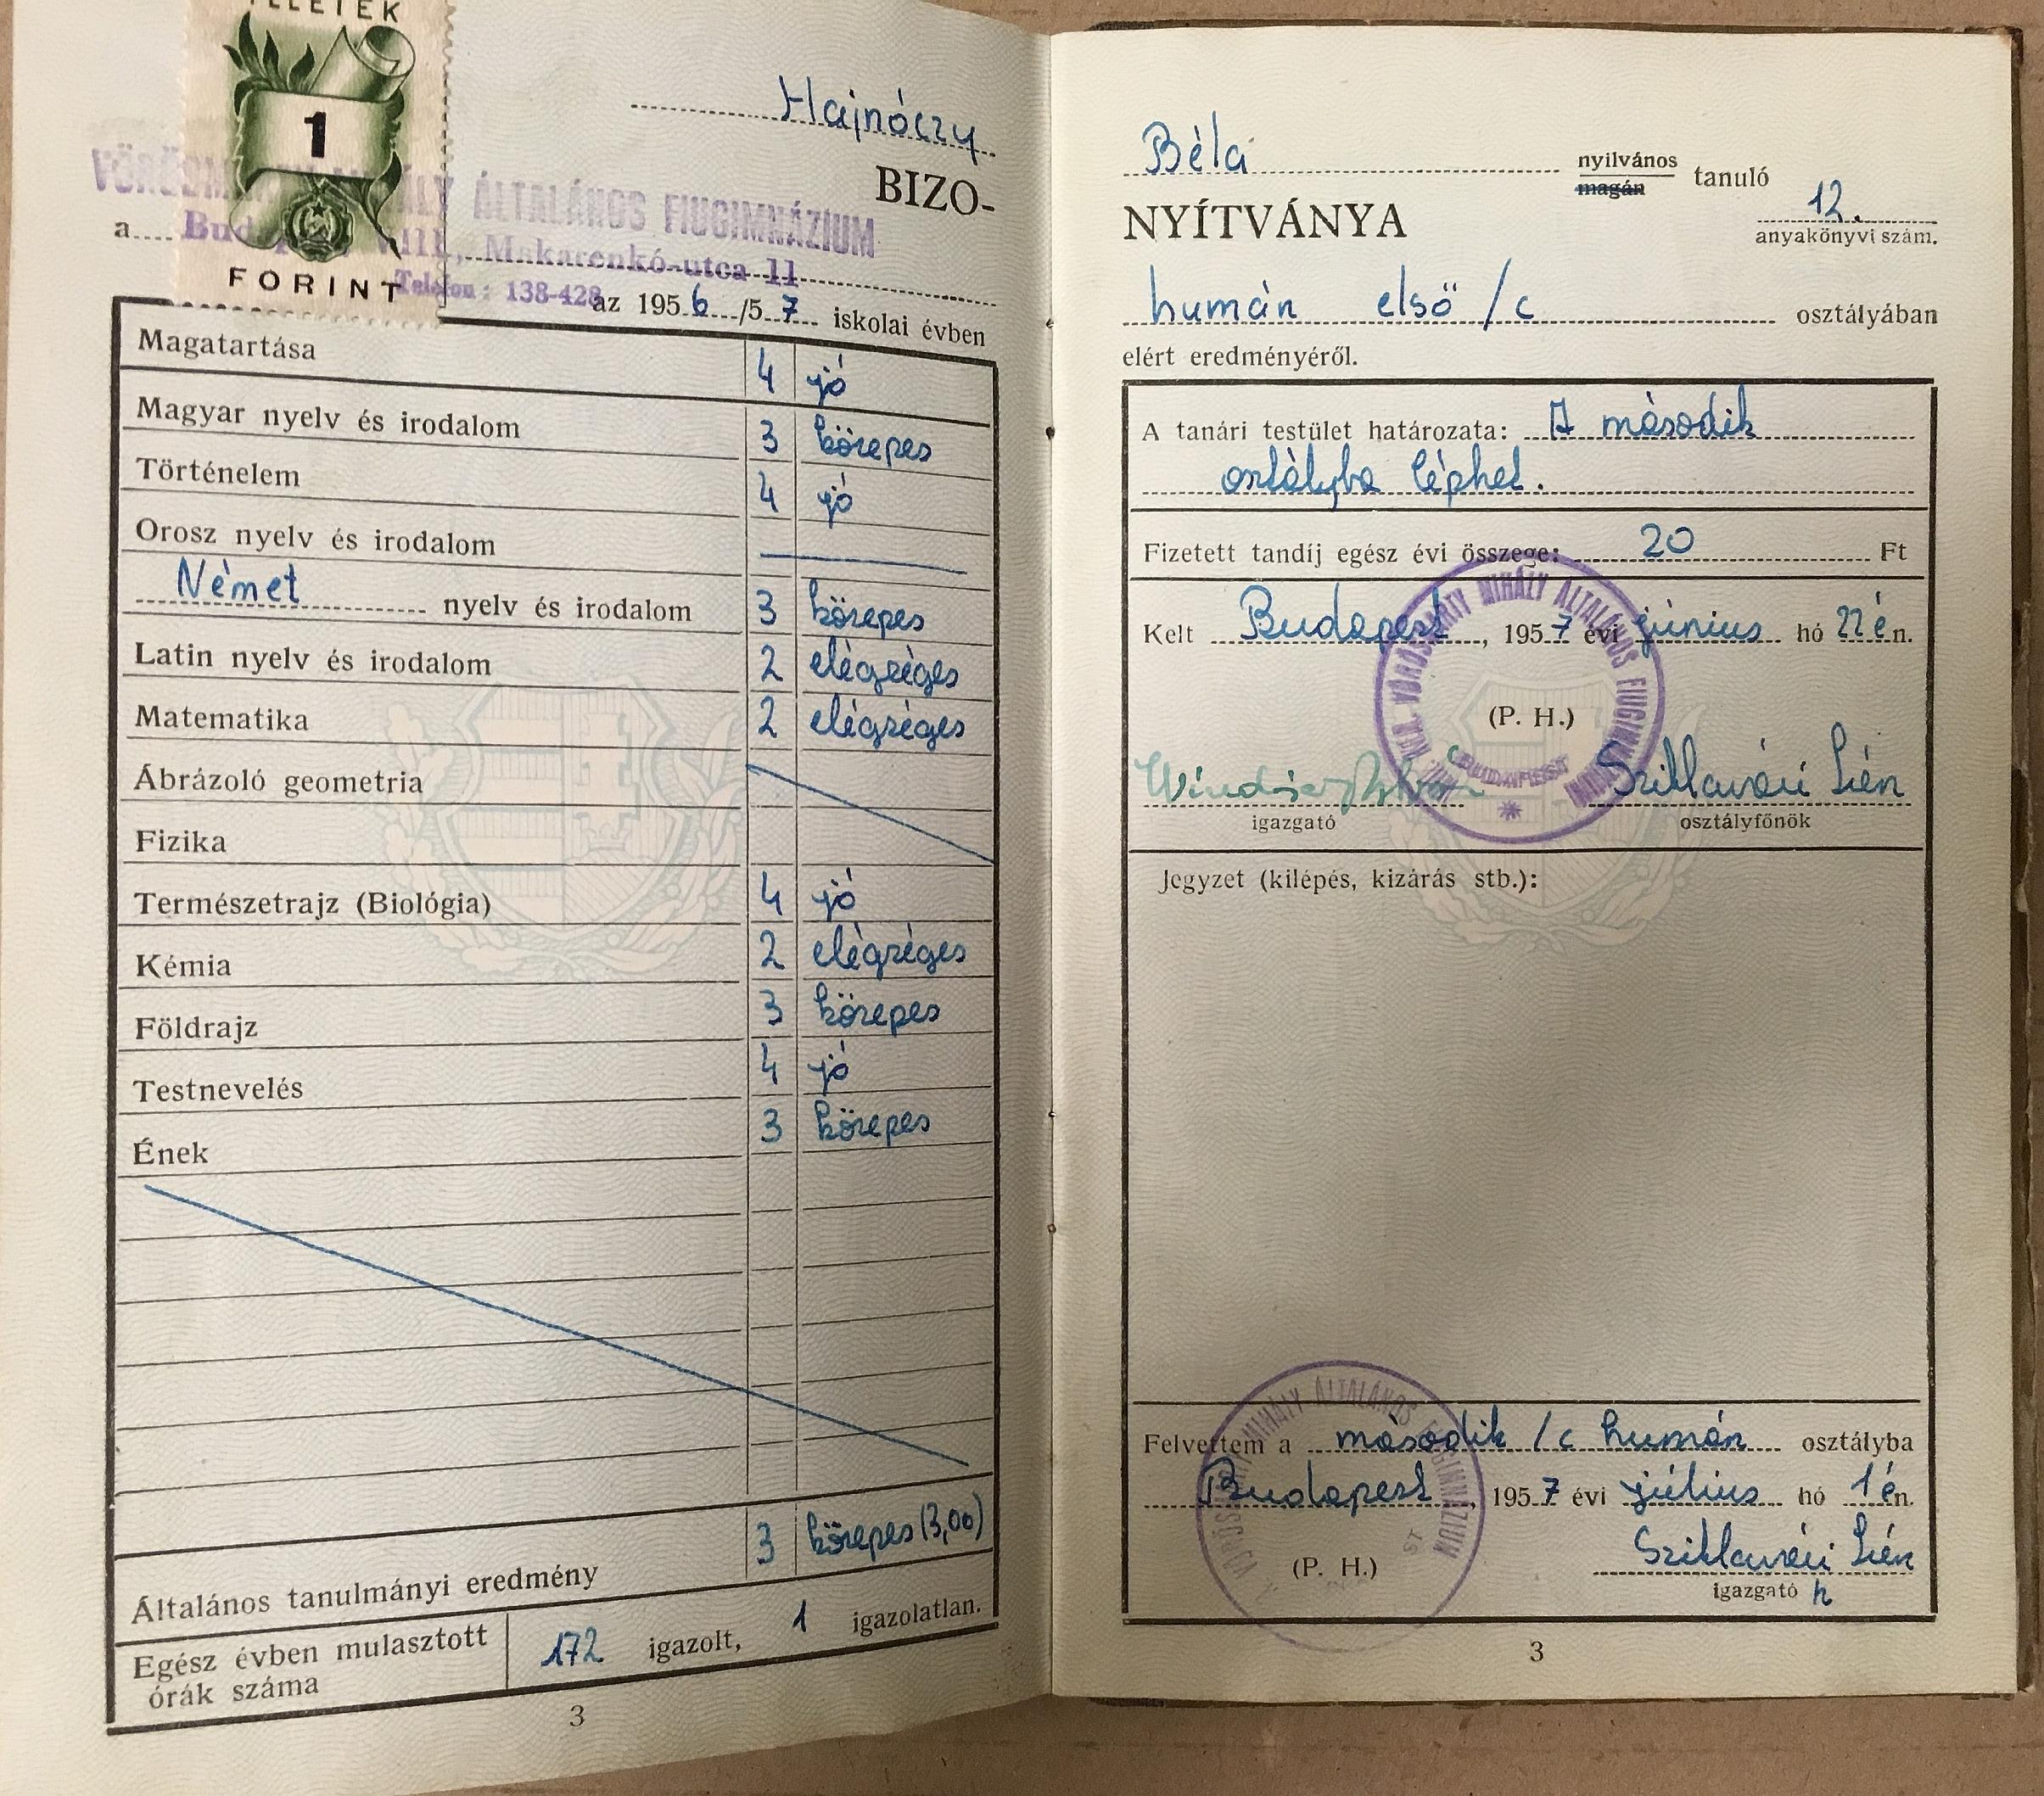 ILLETÉK
1
FORINT
Hajnóczy
BIZO-
VÖRÖSMARTY MIHÁLY ÁLTALÁNOS FIUGIMNÁZIUM
a Budapest, VIII., Makarenkó-utca 11
Telefon: 138-428
az 1956/57 iskolai évben
Magatartása 4 jó
Magyar nyelv és irodalom 3 közepes
Történelem 4 jó
Orosz nyelv és irodalom
Német nyelv és irodalom 3 közepes
Latin nyelv és irodalom 2 elégséges
Matematika 2 elégséges
Ábrázoló geometria
Fizika
Természetrajz (Biológia) 4 jó
Kémia 2 elégséges
Földrajz 3 közepes
Testnevelés 4 jó
Ének 3 közepes
Általános tanulmányi eredmény 3 közepes (3,00)
Egész évben mulasztott
órák száma 172 igazolt, 1 igazolatlan.
3
Béla nyilvános
magán tanuló
12.
NYÍTVÁNYA
anyakönyvi szám.
humán első /c osztályában
elért eredményéről.
A tanári testület határozata: A második
osztályba léphet.
Fizetett tandíj egész évi összege: 20 Ft
Kelt Budapest, 1957 évi június hó 22én.
VÖRÖSMARTY MIHÁLY ÁLTALÁNOS FIUGIMNÁZIUM
BUDAPEST
(P. H.)
Sziklavári
igazgató osztályfőnök
Jegyzet (kilépés, kizárás stb.):
VÖRÖSMARTY MIHÁLY ÁLTALÁNOS FIUGIMNÁZIUM
Felvettem a második /c humán osztályba
Budapest, 1957 évi július hó 1én.
(P. H.)
Sziklavári
igazgató h
3